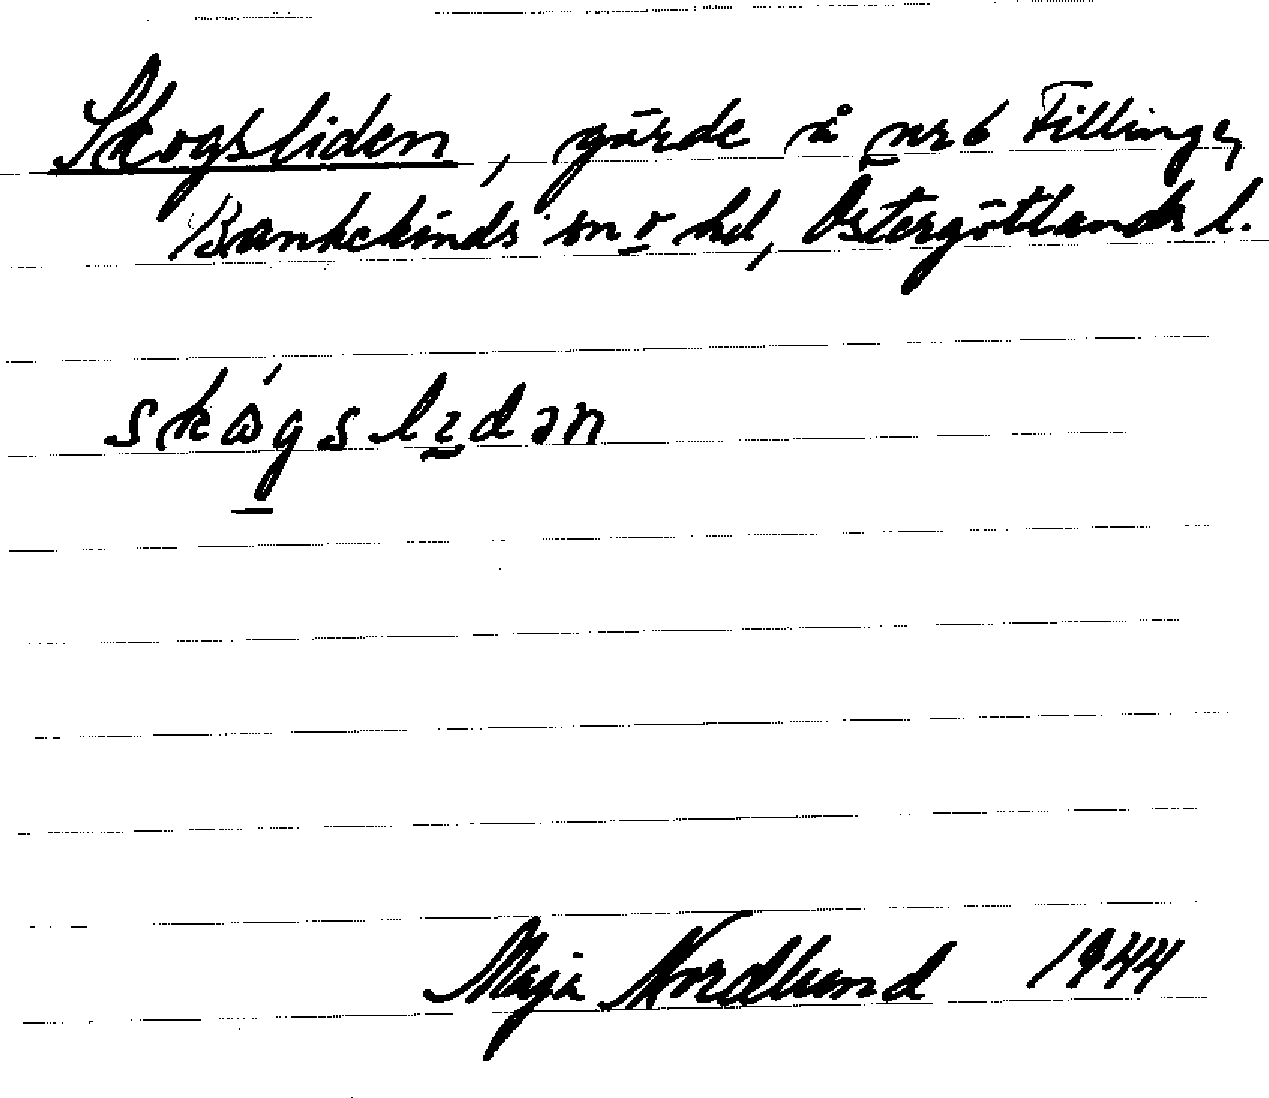 Skogsliden, gärde å nr 6 Fillinge,
Bankekinds sn o hd, Östergötlands l.
skɷ́gslıdən
Maja Nordlund 1944